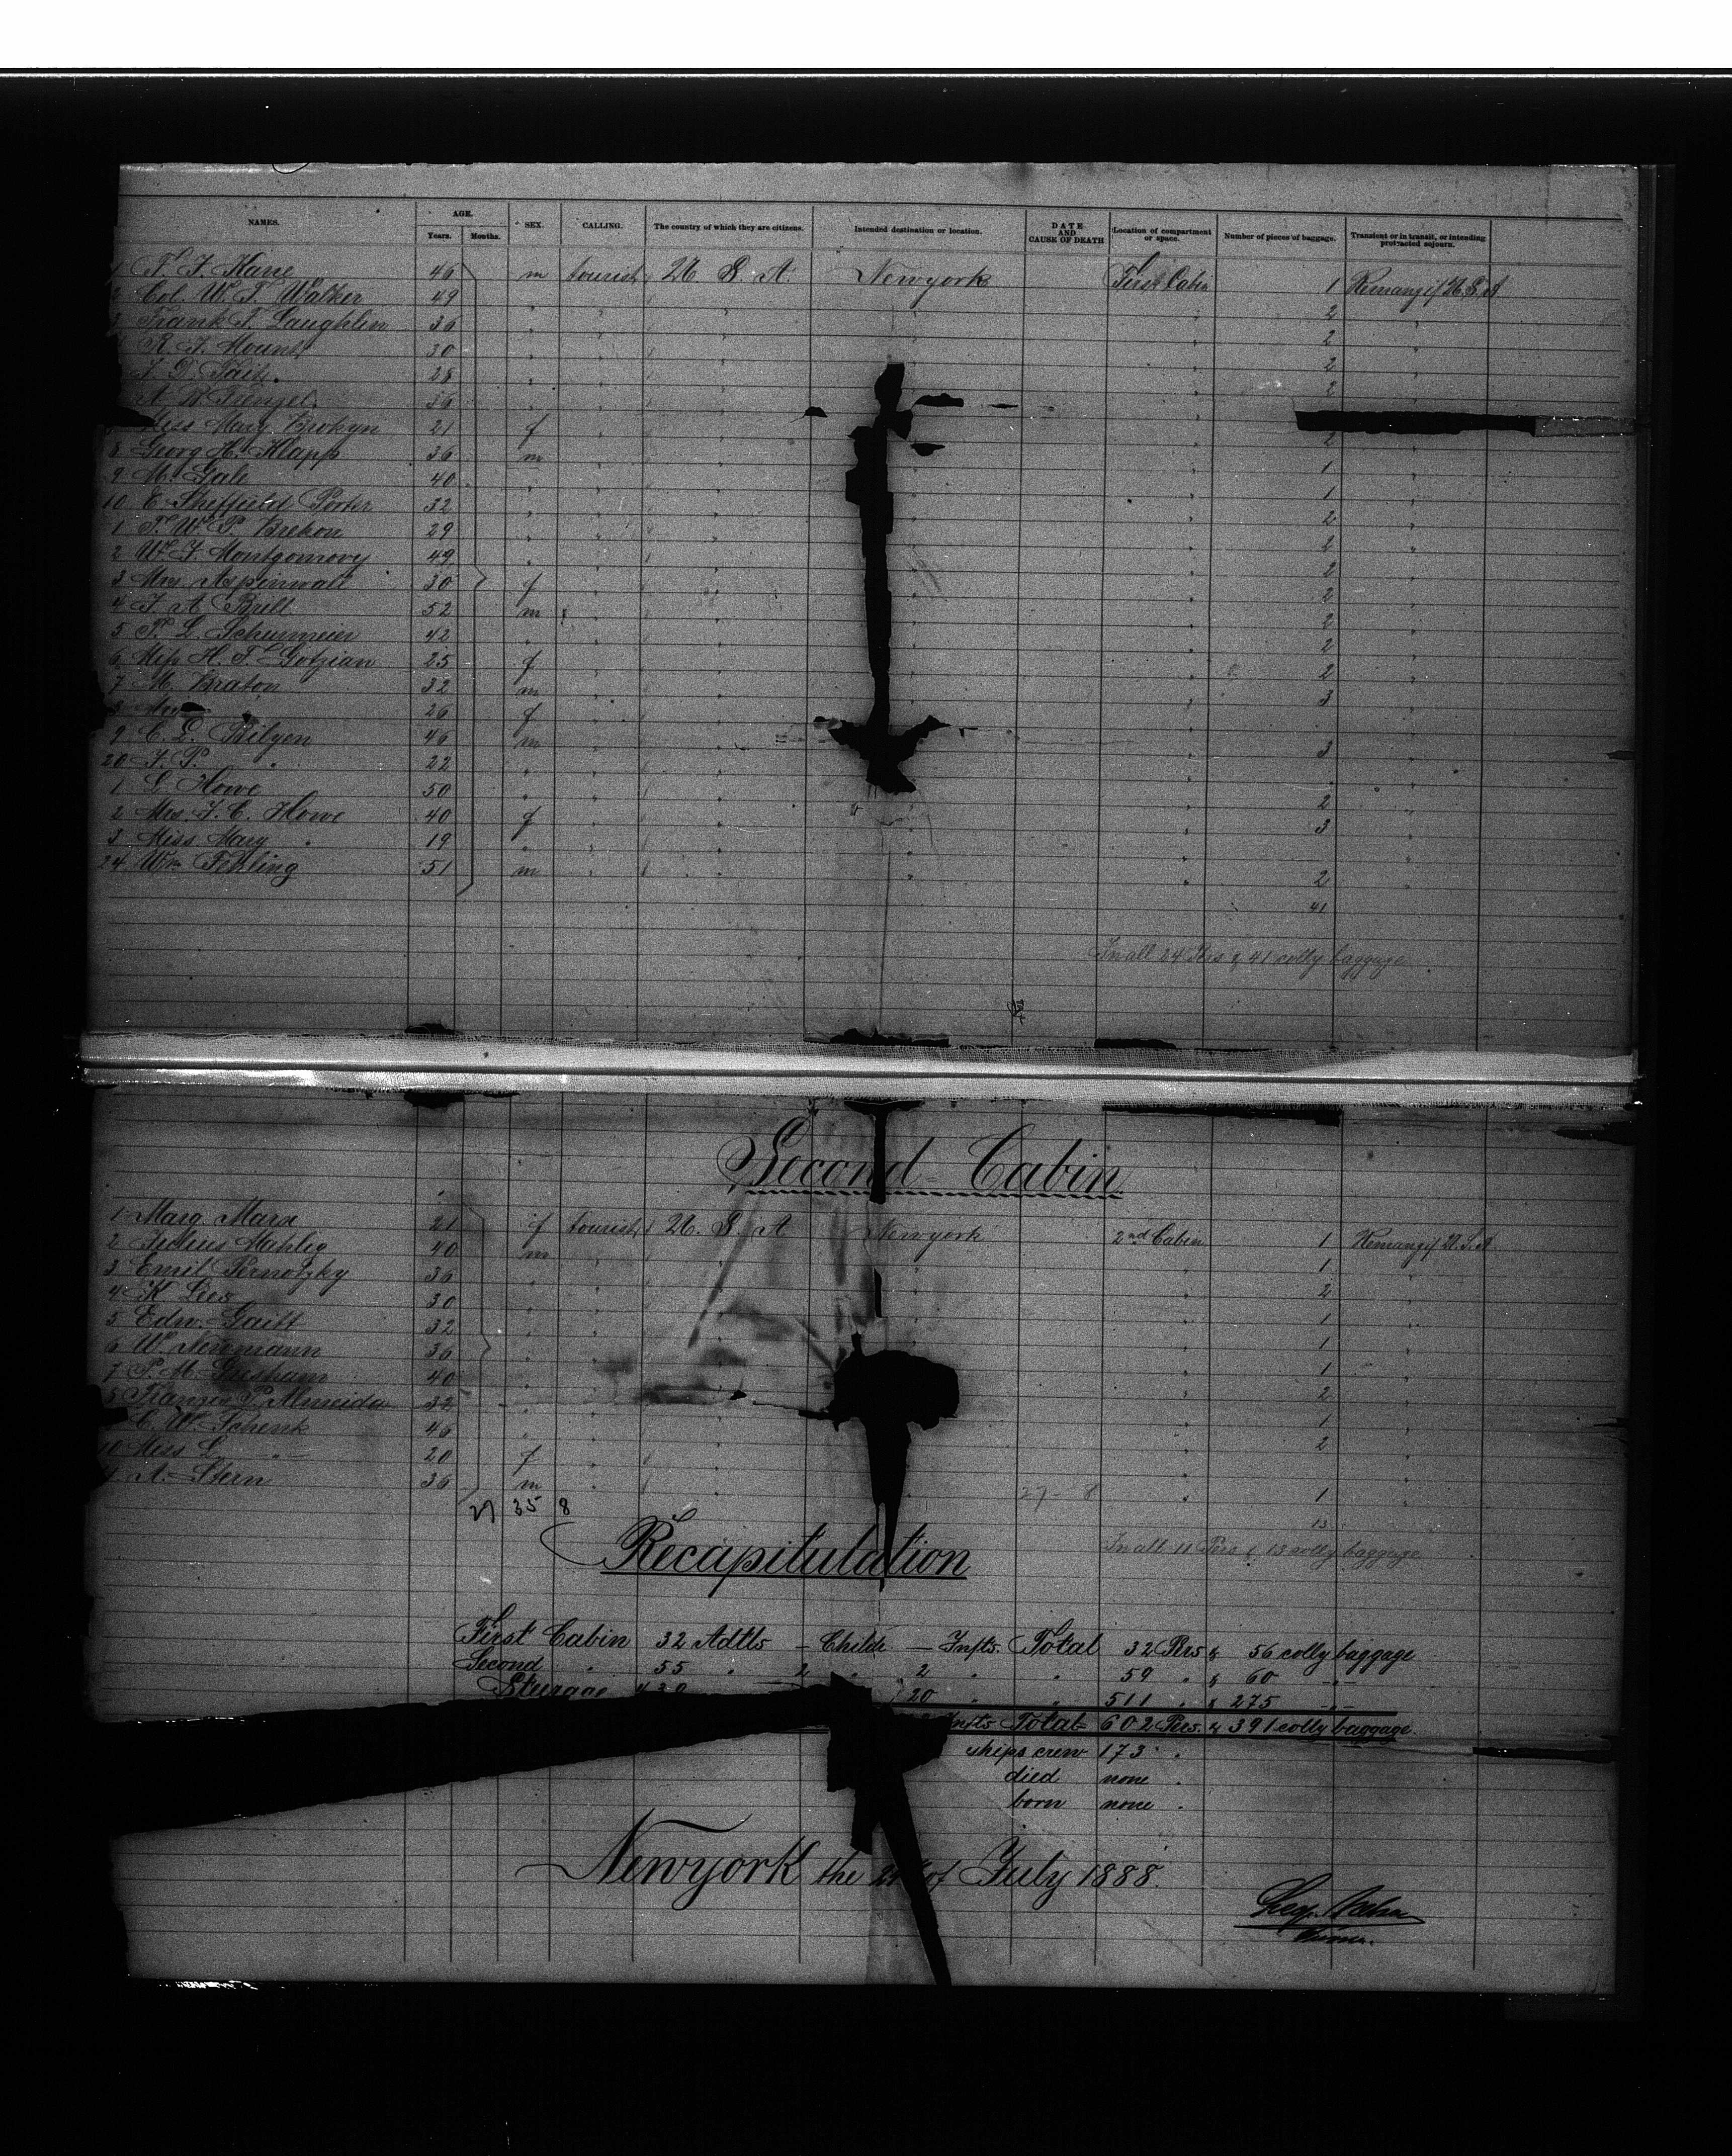 NAMES. AGE. Years. Months. SEX. CALLING. The country of which they are citizens. Intended destination or location. DATE AND CAUSE OF DEATH Location of compartment or space. Number of pieces of baggage. Transient or in transit, or intending protracted sojourn.
Kane 46 m tourist U. S. A. Newyork First Cabin 1 U.S.A
2 Col. W. T. Walker 49 " " " " 2 "
3 Frank T. Laughlin 36 " " " " 2 "
R. J. Mount 30 " " " " 2 "
28 " " " " 2
A. W. 36 " " " "
Miss Mary 21 f " " " 2
8 Georg H. Klapp 36 m " " " 1 "
9 M. Gale 40 " " " " 1 "
10 E. Sheffield Porter 32 " " " " 2 "
1 T. W. P. 29 " " " " 2 "
2 W. J. Montgomory 49 " " " " 2 "
3 Mrs. Aspinwall 30 f " " " 2 "
4 J. A. Bull 52 m " " " 2 "
5 P. L. Schurmeier 42 " " " " 2 "
6 Miss H. T. Gotzian 25 f " " " 2 "
7 M. Braton 32 m " " " 3 "
8 Mrs 26 f " " "
9 C. E. Bilyen 46 m " " " 3 "
20 J. P. " 22 " " " " "
1 G. Howe 50 " " " " 2 "
2 Mrs. J. C. Howe 40 f " " " 3 "
3 Miss Mary " 19 " " " " "
24 Wm. Fehling 51 m " " " 2 "
41
In all 24 Prs & 41 colly baggage
Second Cabin
1 Marg. Marx 21 f tourist U. S. A Newyork 2nd Cabin 1 U.S.A
2 Julius Mahlig 40 m " " " 1 "
3 Emil Pernotzky 36 " " " " 2 "
4 K. Lies 30 " " " " 1 "
5 Edw. Gaitt 32 " " " " 1 "
6 W. Newmann 36 " " " " 1 "
7 P. M. Gresham 40 " " " " 2 "
8 P. Almeida 32 " " " " 1 "
C. W. Schenk 46 " " " " 2 "
10 Miss L. " 20 f " " " "
A. Stern 36 m " " " 1 "
27 35 8 27 - 8
13
In all 11 Pers & 13 colly baggage
Recapitulation
First Cabin 32 Adtls - Childr - Infts. Total 32 Prs & 56 colly baggage
Second " 55 " 2 " 2 " " 59 " & 60 -"-
Steerage 20 " " 511 " & 275 -"-
Infts Total 602 Pers. & 391 colly baggage.
ships crew 173 "
died none "
born none "
Newyork the of July 1888.